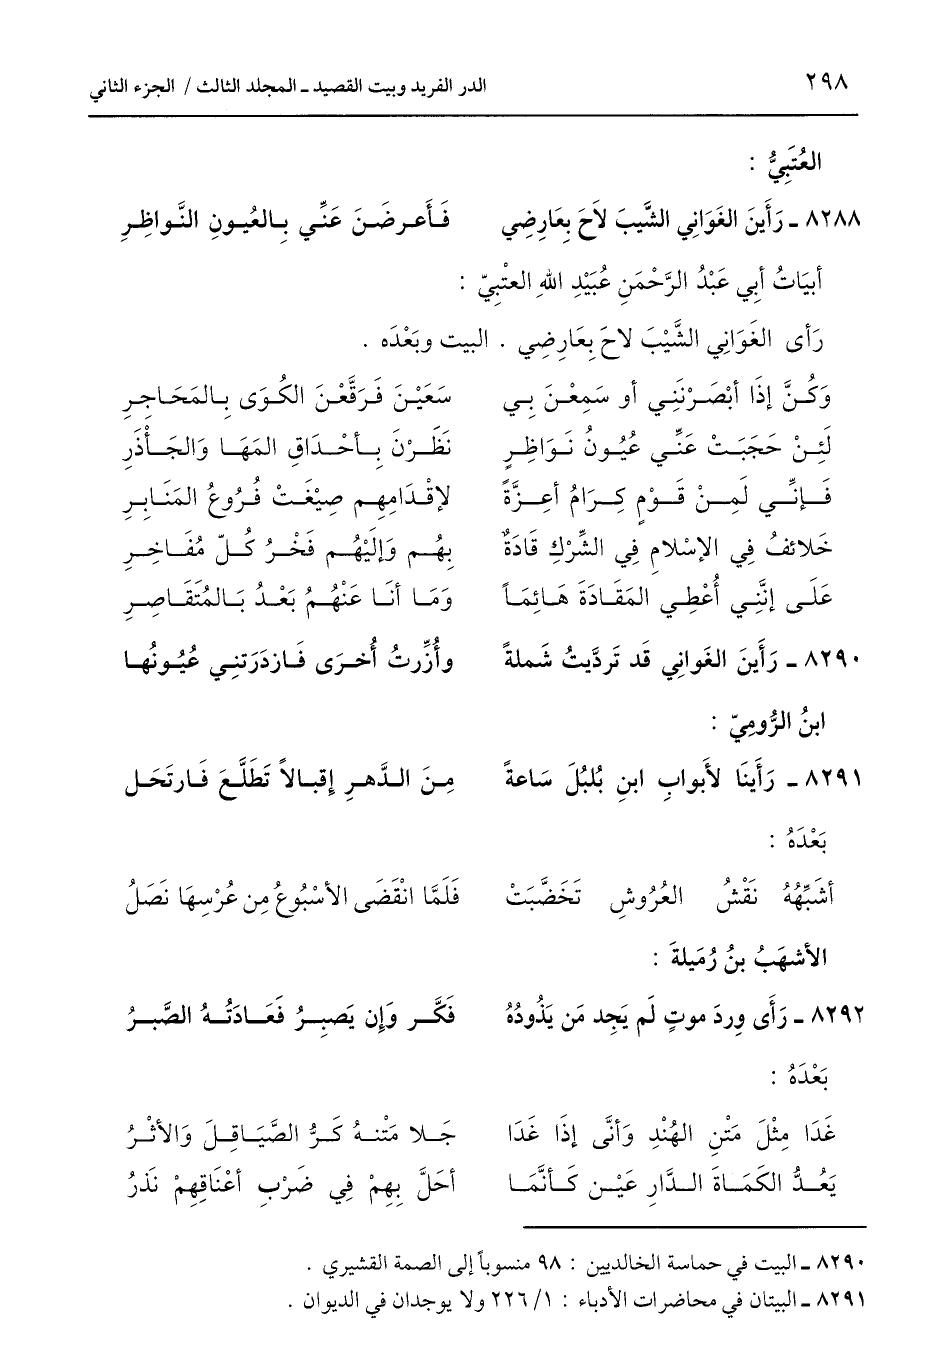 ٢٩٨ الدر الفريد وبيت القصيد ـ المجلد الثالث / الجزء الثاني
العُتَبِيُّ :
٨٢٨٨ ـ رَأَينَ الغَوَانِي الشَّيبَ لَاحَ بِعَارِضِي فَأَعرضَنَ عَنِّي بِالعُيونِ النَّواظِرِ
أبيَاتُ أبِي عَبْدُ الرَّحْمَنِ عُبَيْدِ اللهِ العتْبِيّ :
رَأى الغَوَانِي الشَّيْبَ لاحَ بِعَارِضِي . البيت وبَعْدَه .
وَكُنَّ إِذَا أبْصَرْنَنِي أو سَمِعْنَ بِي سَعَيْنَ فَرَقَّعْنَ الكُوَى بِالمَحَاجِرِ
لَئِنْ حَجَبَتْ عَنِّي عُيُونُ نَوَاظِرٍ نَظَرْنَ بِأحْدَاقِ المَهَا وَالجَأْذَرِ
فَإنِّي لَمِنْ قَوْمٍ كِرَامُ أعِزَّةً لإقْدَامِهِم صِيْغَتْ فُرُوعُ المَنَابِرِ
خَلائفُ فِي الإسْلامِ فِي الشّرْكِ قَادَةٌ بِهُم وَإلَيْهُم فَخْرُ كُلّ مُفَاخِرِ
عَلَى إنَّنِي أُعْطِي المَقَادَةَ هَائِمَاً وَمَا أنَا عَنْهُمُ بَعْدُ بَالمُتَقَاصِرِ
٨٢٩٠ ـ رَأَينَ الغَوانِي قَد تَردَّيتُ شَملةً وأُزِّرتُ أُخرَى فَازدَرَتنِي عُيُونُها
ابنُ الرُّومِيّ :
٨٢٩١ ـ رَأَينَا لأَبوابِ ابنِ بُلبُلَ سَاعةً مِنَ الدَّهرِ إِقبالاً تَطَلَّعَ فَارتَحَل
بَعْدَهُ :
أشَبِّهُهُ نَقْشُ العُرُوشِ تَخَضَّبَتْ فَلَمَّا انْقَضَى الأسْبُوعُ مِن عُرْسِهَا نَصَلُ
الأشهَبُ بنُ رُمَيلةَ :
٨٢٩٢ ـ رَأَى وِردَ موتٍ لَم يَجِد مَن يَذُودُهُ فَكَّر وَإِن يَصبِرُ فَعَادَتُهُ الصَّبرُ
بَعْدَهُ :
غَدَا مِثْلَ مَتْنِ الهُنْدِ وَأنَّى إِذَا غَدَا جَلا مَتْنهُ كَرُّ الصَّيَاقِلَ وَالأثْرُ
يَعُدُّ الكَمَاةَ الدَّارِ عَيْنِ كَأنَّمَا أحَلَّ بِهِمْ فِي ضَرْبِ أعْنَاقِهِمْ نَذرُ
٨٢٩٠ ـ البيت في حماسة الخالديين : ٩٨ منسوباً إلى الصمة القشيري .
٨٢٩١ ـ البيتان في محاضرات الأدباء : ١/ ٢٢٦ ولا يوجدان في الديوان .